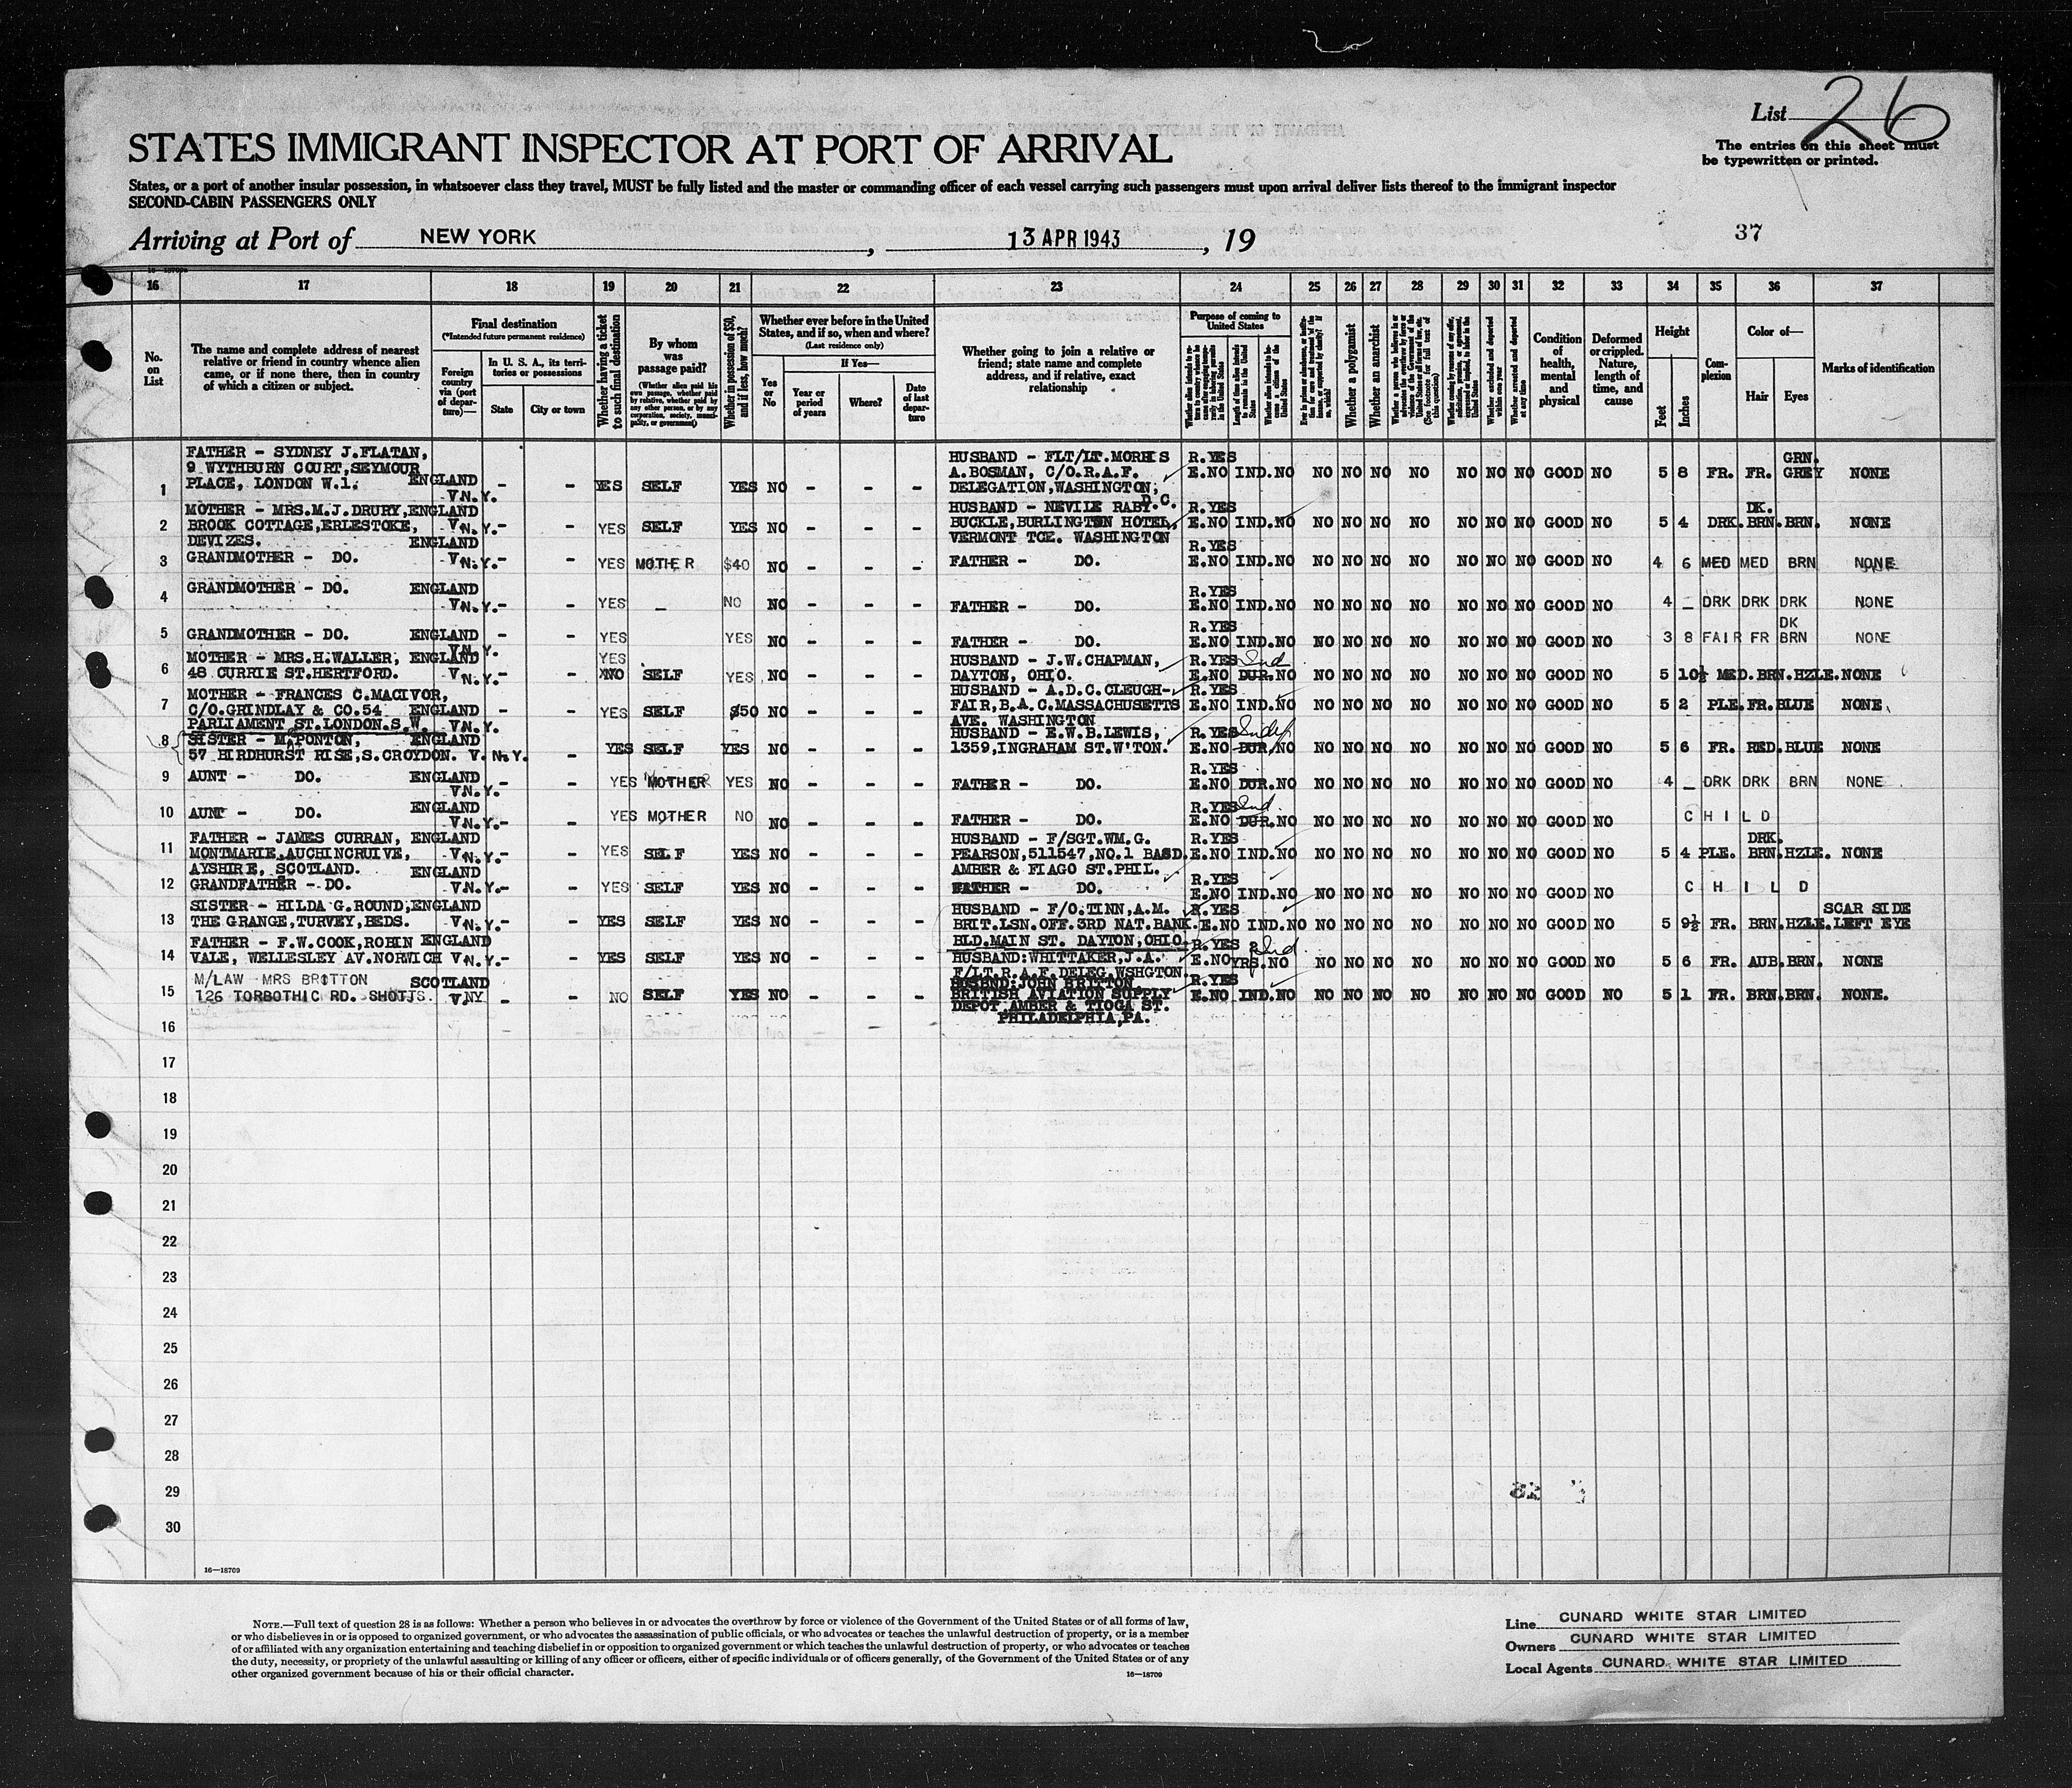 List 26
The entries on this sheet must
be typewritten or printed.
STATES IMMIGRANT INSPECTOR AT PORT OF ARRIVAL
States, or a port of another insular possession, in whatsoever class they travel, MUST be fully listed and the master or commanding officer of each vessel carrying such passengers must upon arrival deliver lists thereof to the immigrant inspector
SECOND-CABIN PASSENGERS ONLY
Arriving at Port of NEW YORK , 13 APR 1943 , 19
37
16 17 18 19 20 21 22 23 24 25 26 27 28 29 30 31 32 33 34 35 36 37
No. on List
The name and complete address of nearest relative or friend in country whence alien came, or if none there, then in country of which a citizen or subject.
Final destination
(*Intended future permanent residence)
Foreign country via (port of departure)—
In U. S. A., its territories or possessions
State
City or town
Whether having a ticket to such final destination
By whom was passage paid?
(Whether alien paid his own passage, whether paid by relative, whether paid by any other person, or by any corporation, society, municipality, or government)
Whether in possession of $50, and if less, how much?
Whether ever before in the United States, and if so, when and where?
(Last residence only)
Yes or No
If Yes—
Year or period of years
Where?
Date of last departure
Whether going to join a relative or friend; state name and complete address, and if relative, exact relationship
Purpose of coming to United States
Whether a polygamist
Whether an anarchist
Condition of health, mental and physical
Deformed or crippled. Nature, length of time, and cause
Height
Feet
Inches
Complexion
Color of—
Hair
Eyes
Marks of identification
1 FATHER - SYDNEY J.FLATAN, 9 WYTHBURN COURT,SEYMOUR PLACE, LONDON W.1. ENGLAND V.N.Y. - - YES SELF YES NO - - - HUSBAND - FLT/LT.MORRIS A.BOSMAN, C/O.R.A.F. DELEGATION,WASHINGTON, D.C. R.YES E.NO IND.NO NO NO NO NO NO NO NO GOOD NO 5 8 FR. FR. GRN. GREY NONE
2 MOTHER - MRS.M.J.DRURY, BROOK COTTAGE,ERLESTOKE, DEVIZES. ENGLAND V.N.Y. - - YES SELF YES NO - - - HUSBAND - NEVILE RABY. BUCKLE,BURLINGTON HOTEL, VERMONT TCE. WASHINGTON R.YES E.NO IND.NO NO NO NO NO NO NO NO GOOD NO 5 4 DRK. DK. BRN. BRN. NONE
3 GRANDMOTHER - DO. ENGLAND V.N.Y. - - YES MOTHER $40 NO - - - FATHER - DO. R.YES E.NO IND.NO NO NO NO NO NO NO NO GOOD NO 4 6 MED MED BRN NONE
4 GRANDMOTHER - DO. ENGLAND V.N.Y. - - YES - NO NO - - - FATHER - DO. R.YES E.NO IND.NO NO NO NO NO NO NO NO GOOD NO 4 - DRK DRK DRK NONE
5 GRANDMOTHER - DO. ENGLAND V.N.Y. - YES YES NO - - - FATHER - DO. R.YES E.NO IND.NO NO NO NO NO NO NO NO GOOD NO 3 8 FAIR FR DK BRN NONE
6 MOTHER - MRS.H.WALLER, 48 CURRIE ST.HERTFORD. ENGLAND V.N.Y. - - YES SELF YES NO - - - HUSBAND - J.W.CHAPMAN, DAYTON, OHIO. R.YES Ind E.NO DUR.NO NO NO NO NO NO NO NO GOOD NO 5 10½ MED. BRN. HZLE. NONE
7 MOTHER - FRANCES C.MACIVOR, C/O.GRINDLAY & CO.54 PARLIAMENT ST.LONDON.S.W. ENGLAND V.N.Y. - YES SELF $50 NO - - - HUSBAND - A.D.C.CLEUGH- FAIR,B.A.C.MASSACHUSETTS AVE. WASHINGTON R.YES E.NO IND.NO NO NO NO NO NO NO NO GOOD NO 5 2 PLE. FR. BLUE NONE
8 SISTER - M.PONTON, 57 HIRDHURST RISE,S.CROYDON. ENGLAND V.N.Y. - YES SELF YES NO - - - HUSBAND - E.W.B.LEWIS, 1359,INGRAHAM ST.W'TON. R.YES Indef E.NO DUR.NO NO NO NO NO NO NO NO GOOD NO 5 6 FR. RED. BLUE NONE
9 AUNT - DO. ENGLAND V.N.Y. - YES MOTHER YES NO - - - FATHER - DO. R.YES E.NO DUR.NO NO NO NO NO NO NO NO GOOD NO 4 - DRK DRK BRN NONE
10 AUNT - DO. ENGLAND V.N.Y. - YES MOTHER NO NO - - - FATHER - DO. R.YES Ind. E.NO DUR.NO NO NO NO NO NO NO NO GOOD NO CHILD
11 FATHER - JAMES CURRAN, MONTMARIE,AUCHINCRUIVE, AYSHIRE, SCOTLAND. ENGLAND V.N.Y. - YES SELF YES NO - - - HUSBAND - F/SGT.WM.G. PEARSON,511547,NO.1 BASD. AMBER & FIAGO ST.PHIL. R.YES E.NO IND.NO NO NO NO NO NO NO NO GOOD NO 5 4 PLE. DRK. BRN. HZLE. NONE
12 GRANDFATHER - DO. ENGLAND V.N.Y. - - YES SELF YES NO - - - FATHER - DO. R.YES E.NO IND.NO NO NO NO NO NO NO NO GOOD NO CHILD
13 SISTER - HILDA G.ROUND, THE GRANGE,TURVEY,BEDS. ENGLAND V.N.Y. - - YES SELF YES NO - - - HUSBAND - F/O.TINN,A.M. BRIT.LSN.OFF.3RD NAT.BANK. BLD.MAIN ST. DAYTON,OHIO R.YES E.NO IND.NO NO NO NO NO NO NO NO GOOD NO 5 9½ FR. BRN. HZLE. SCAR SIDE LEFT EYE
14 FATHER - F.W.COOK,ROBIN VALE, WELLESLEY AV.NORWICH ENGLAND V.N.Y. - - YES SELF YES NO - - - HUSBAND:WHITTAKER,J.A. F/LT.R.A.F.DELEG.WSHGTON. R.YES 2 Ind. E.NO YRS.NO NO NO NO NO NO NO NO GOOD NO 5 6 FR. AUB. BRN. NONE
15 M/LAW MRS BRITTON 126 TORBOTHIC RD. SHOTTS. SCOTLAND V.NY - - NO SELF YES NO - - - HUSBND:JOHN BRITTON, BRITISH AVIATION SUPPLY DEPOT,AMBER & TIOGA ST. PHILADELPHIA,PA. R.YES E.NO IND.NO NO NO NO NO NO NO NO GOOD NO 5 1 FR. BRN. BRN. NONE.
16
17
18
19
20
21
22
23
24
25
26
27
28
29
30
16—18709
NOTE.—Full text of question 28 is as follows: Whether a person who believes in or advocates the overthrow by force or violence of the Government of the United States or of all forms of law,
or who disbelieves in or is opposed to organized government, or who advocates the assassination of public officials, or who advocates or teaches the unlawful destruction of property, or is a member
of or affiliated with any organization entertaining and teaching disbelief in or opposition to organized government or which teaches the unlawful destruction of property, or who advocates or teaches
the duty, necessity, or propriety of the unlawful assaulting or killing of any officer or officers, either of specific individuals or of officers generally, of the Government of the United States or of any
other organized government because of his or their official character.
16—18709
Line CUNARD WHITE STAR LIMITED
Owners CUNARD WHITE STAR LIMITED
Local Agents CUNARD WHITE STAR LIMITED